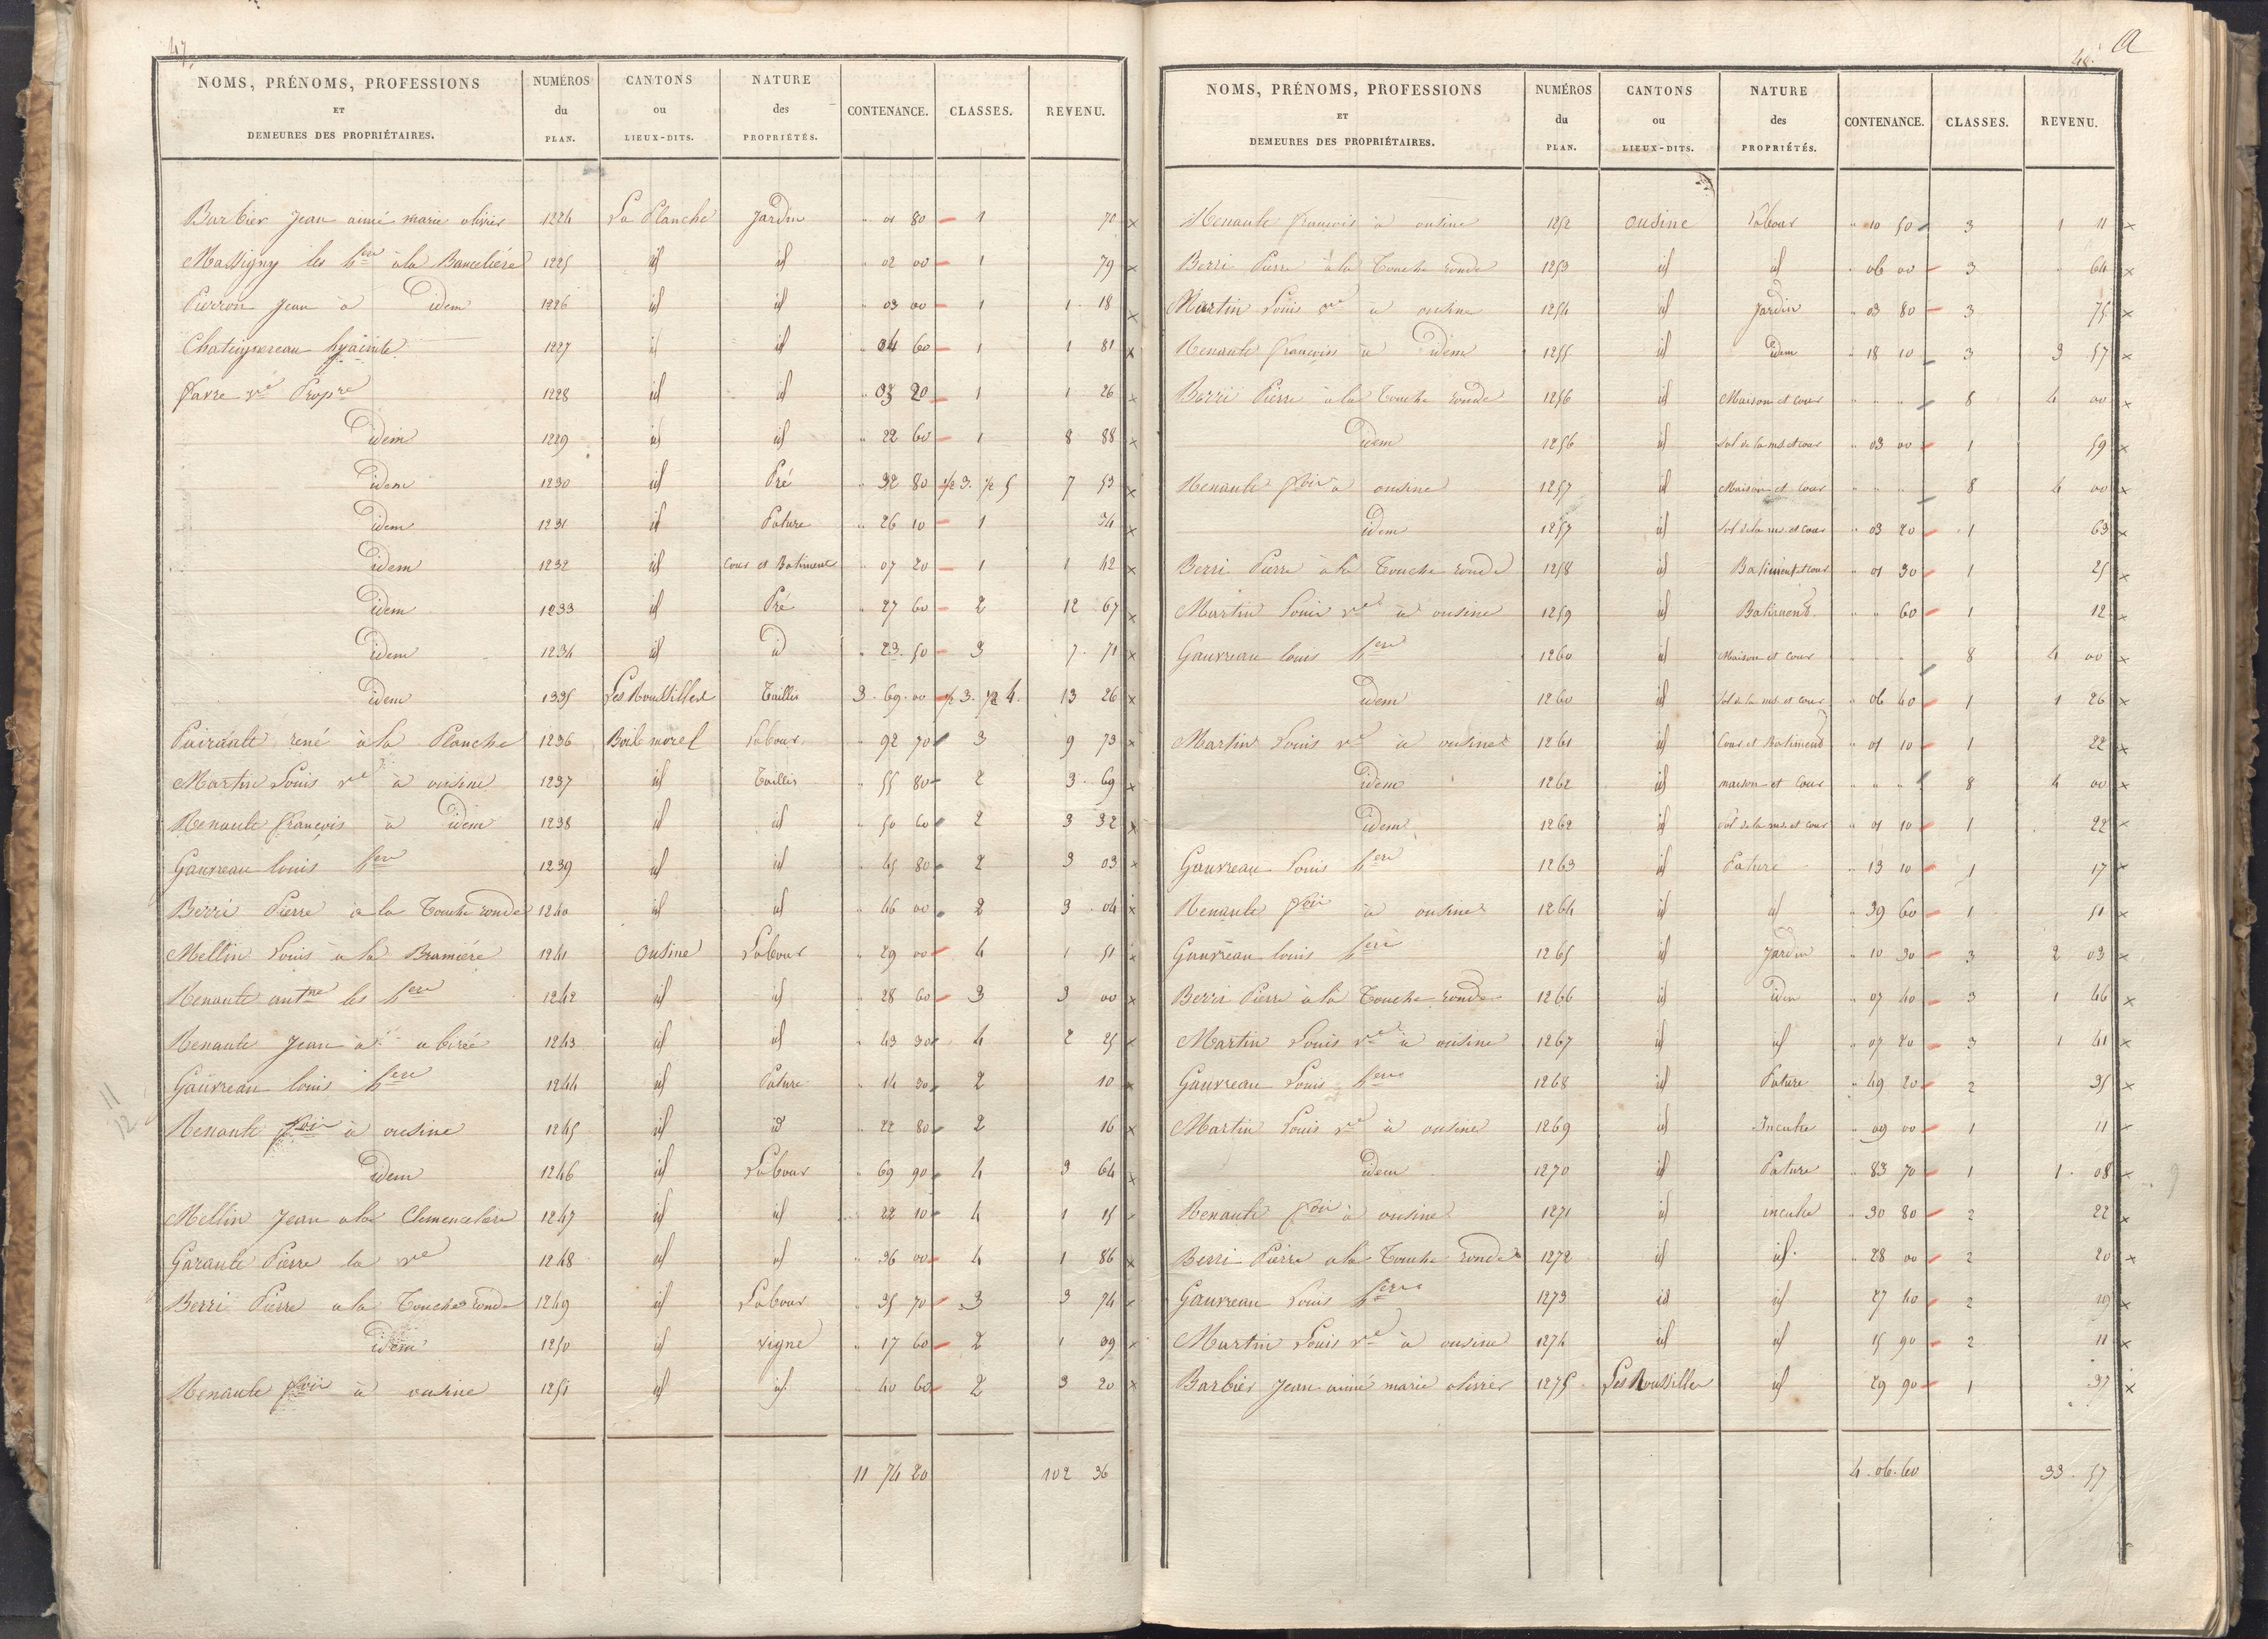 47.
NOMS, PRÉNOMS, PROFESSIONS ET DEMEURES DES PROPRIÉTAIRES. NUMÉROS du PLAN. CANTONS ou LIEUX-DITS. NATURE des PROPRIÉTÉS. CONTENANCE. CLASSES. REVENU.
Barbier Jean aimé marie olivier 1224 La Planche Jardin " 01 80 1 70
Massigny les hers à la Bancelière 1225 id id " 02 00 1 79
Pierron Jean à idem 1226 id id " 03 00 1 1 18
Chateignereau hyacinte 1227 id id " 04 60 1 1 81
favre ve Propre 1228 id id " 03 20 1 1 26
idem 1229 id id " 22 60 1 8 88
idem 1230 id Pré " 32 80 1/2 3. 1/2 5 7 53
idem 1231 id Pature " 26 10 1 34
idem 1232 id Cour et Batiment " 07 20 1 1 42
idem 1233 id Pré " 27 60 2 12 67
idem 1234 id id " 23 50 3 7 71
idem 1335 Les Roussilles Taillis 3 69 00 1/2 3. 1/2 4. 13 26
rené à la Planche 1236 Bois morel Labour " 92 70 3 9 73
Martin Louis ve à ousine 1237 id Taillis " 55 80 2 3 69
Renault françois à idem 1238 id id " 50 60 2 3 32
Gauvreau louis hers 1239 id id " 45 80 2 3 03
Berri Pierre à la Touche ronde 1240 id id " 46 00 2 3 04
Mellin Louis à la Bramière 1241 Ousine Labour " 29 00 4 1 51
Renault antne les hers 1242 id id " 28 60 3 3 00
Renault Jean à abirée 1243 id id " 43 30 4 2 25
Gauvreau louis hers 1244 id Pature " 14 30 2 10
Renault fois à ousine 1245 id id " 22 80 2 16
idem 1246 id Labour " 69 90 4 3 64
Mellin Jean a la Clemencelière 1247 id id " 22 10 4 1 15
Garault Pierre la ve 1248 id id " 36 00 4 1 86
Berri Pierre a la Touche ronde 1249 id Labour " 35 70 3 3 74
idem 1250 id vigne " 17 60 2 1 39
Renault fois à ousine 1251 id id " 40 60 2 3 20
11 74 20 102 36
11
12
a
48.
NOMS, PRÉNOMS, PROFESSIONS ET DEMEURES DES PROPRIÉTAIRES. NUMÉROS du PLAN. CANTONS ou LIEUX-DITS. NATURE des PROPRIÉTÉS. CONTENANCE. CLASSES. REVENU.
Renault françois à ousine 1252 ousine Labour " 10 50 3 1 11
Berri Pierre à la Touche ronde 1253 id id " 06 00 3 " 64
Martin Louis ve à ousine 1254 id Jardin " 03 80 3 75
Renault françois à idem 1255 id idem " 18 10 3 3 57
Berri Pierre à la Touche ronde 1256 id Maison et cour " " " 8 4 00
idem 1256 id sol de la mon et cour " 03 00 1 59
Renault fois à ousine 1257 id Maison et cour " " " 8 4 00
idem 1257 id sol de la mon et cour " 03 20 1 63
Berri Pierre à la Touche ronde 1258 id Batiment et cour " 01 30 1 25
Martin Louis ve à ousine 1259 id Batiment " " 60 1 12
Gauvreau louis hers 1260 id Maison et cour " " " 8 4 00
idem 1260 id sol de la mon et cour " 06 40 1 1 26
Martin Louis ve à ousine 1261 id Cour et Batiment " 01 10 1 22
idem 1262 id maison et cour " " " 8 4 00
idem 1262 id sol de la mon et cour " 01 10 1 22
Gauvreau Louis hers 1263 id Pature " 13 10 1 17
Renault fois à ousine 1264 id id " 39 60 1 51
Gauvreau louis hers 1265 id Jardin " 10 30 3 2 03
Berri Pierre à la Touche ronde 1266 id idem " 07 40 3 1 46
Martin Louis ve à ousine 1267 id id " 07 20 3 1 41
Gauvreau Louis hers 1268 id Pature " 49 20 2 35
Martin Louis ve à ousine 1269 id Inculte " 09 00 1 11
idem 1270 id Pature " 83 70 1 1 08
Renault fois à ousine 1271 id inculte " 30 80 2 22
Berri Pierre a la Touche ronde 1272 id id " 28 00 2 20
Gauvreau Louis hers 1273 id id 27 40 2 19
Martin Louis ve à ousine 1274 id id 15 90 2 11
Barbier Jean aimé marie olivier 1275 Les Roussilles id 29 90 1 37
4 06 60 33 57